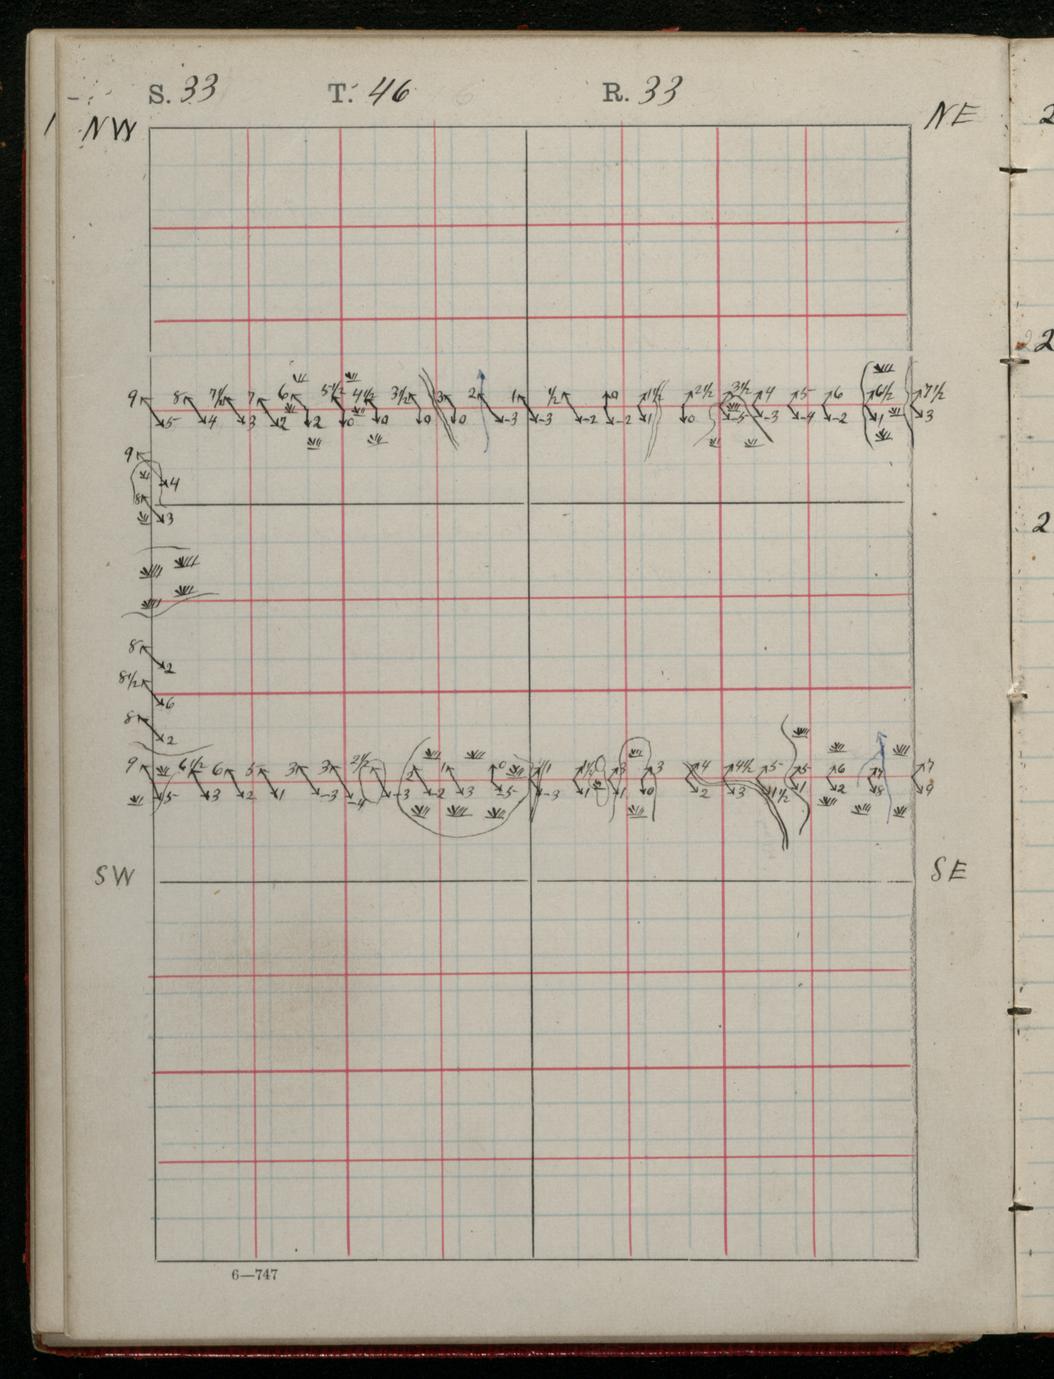 S. 33 T. 46 R. 33
NW NE
9 8 7½ 7 6 5½ 4½ 3½ 3 2 1 ½ 0 1½ 2½ 3½ 4 5 6 6½ 7½
5 4 3 2 2 0 0 0 0 -3 -3 -2 -2 1 0 -5 -3 -4 -2 1 3
9
4
8
3
8
2
8½
6
8
2
9 6½ 6 5 3 3 2½ 2 1 0 1 1½ 3 3 4 4½ 5 5 6 7 7
5 3 2 1 -3 -4 -3 -2 3 5 -3 1 1 0 2 3 1½ 1 2 8 9
SW SE
6—747
2
2
2